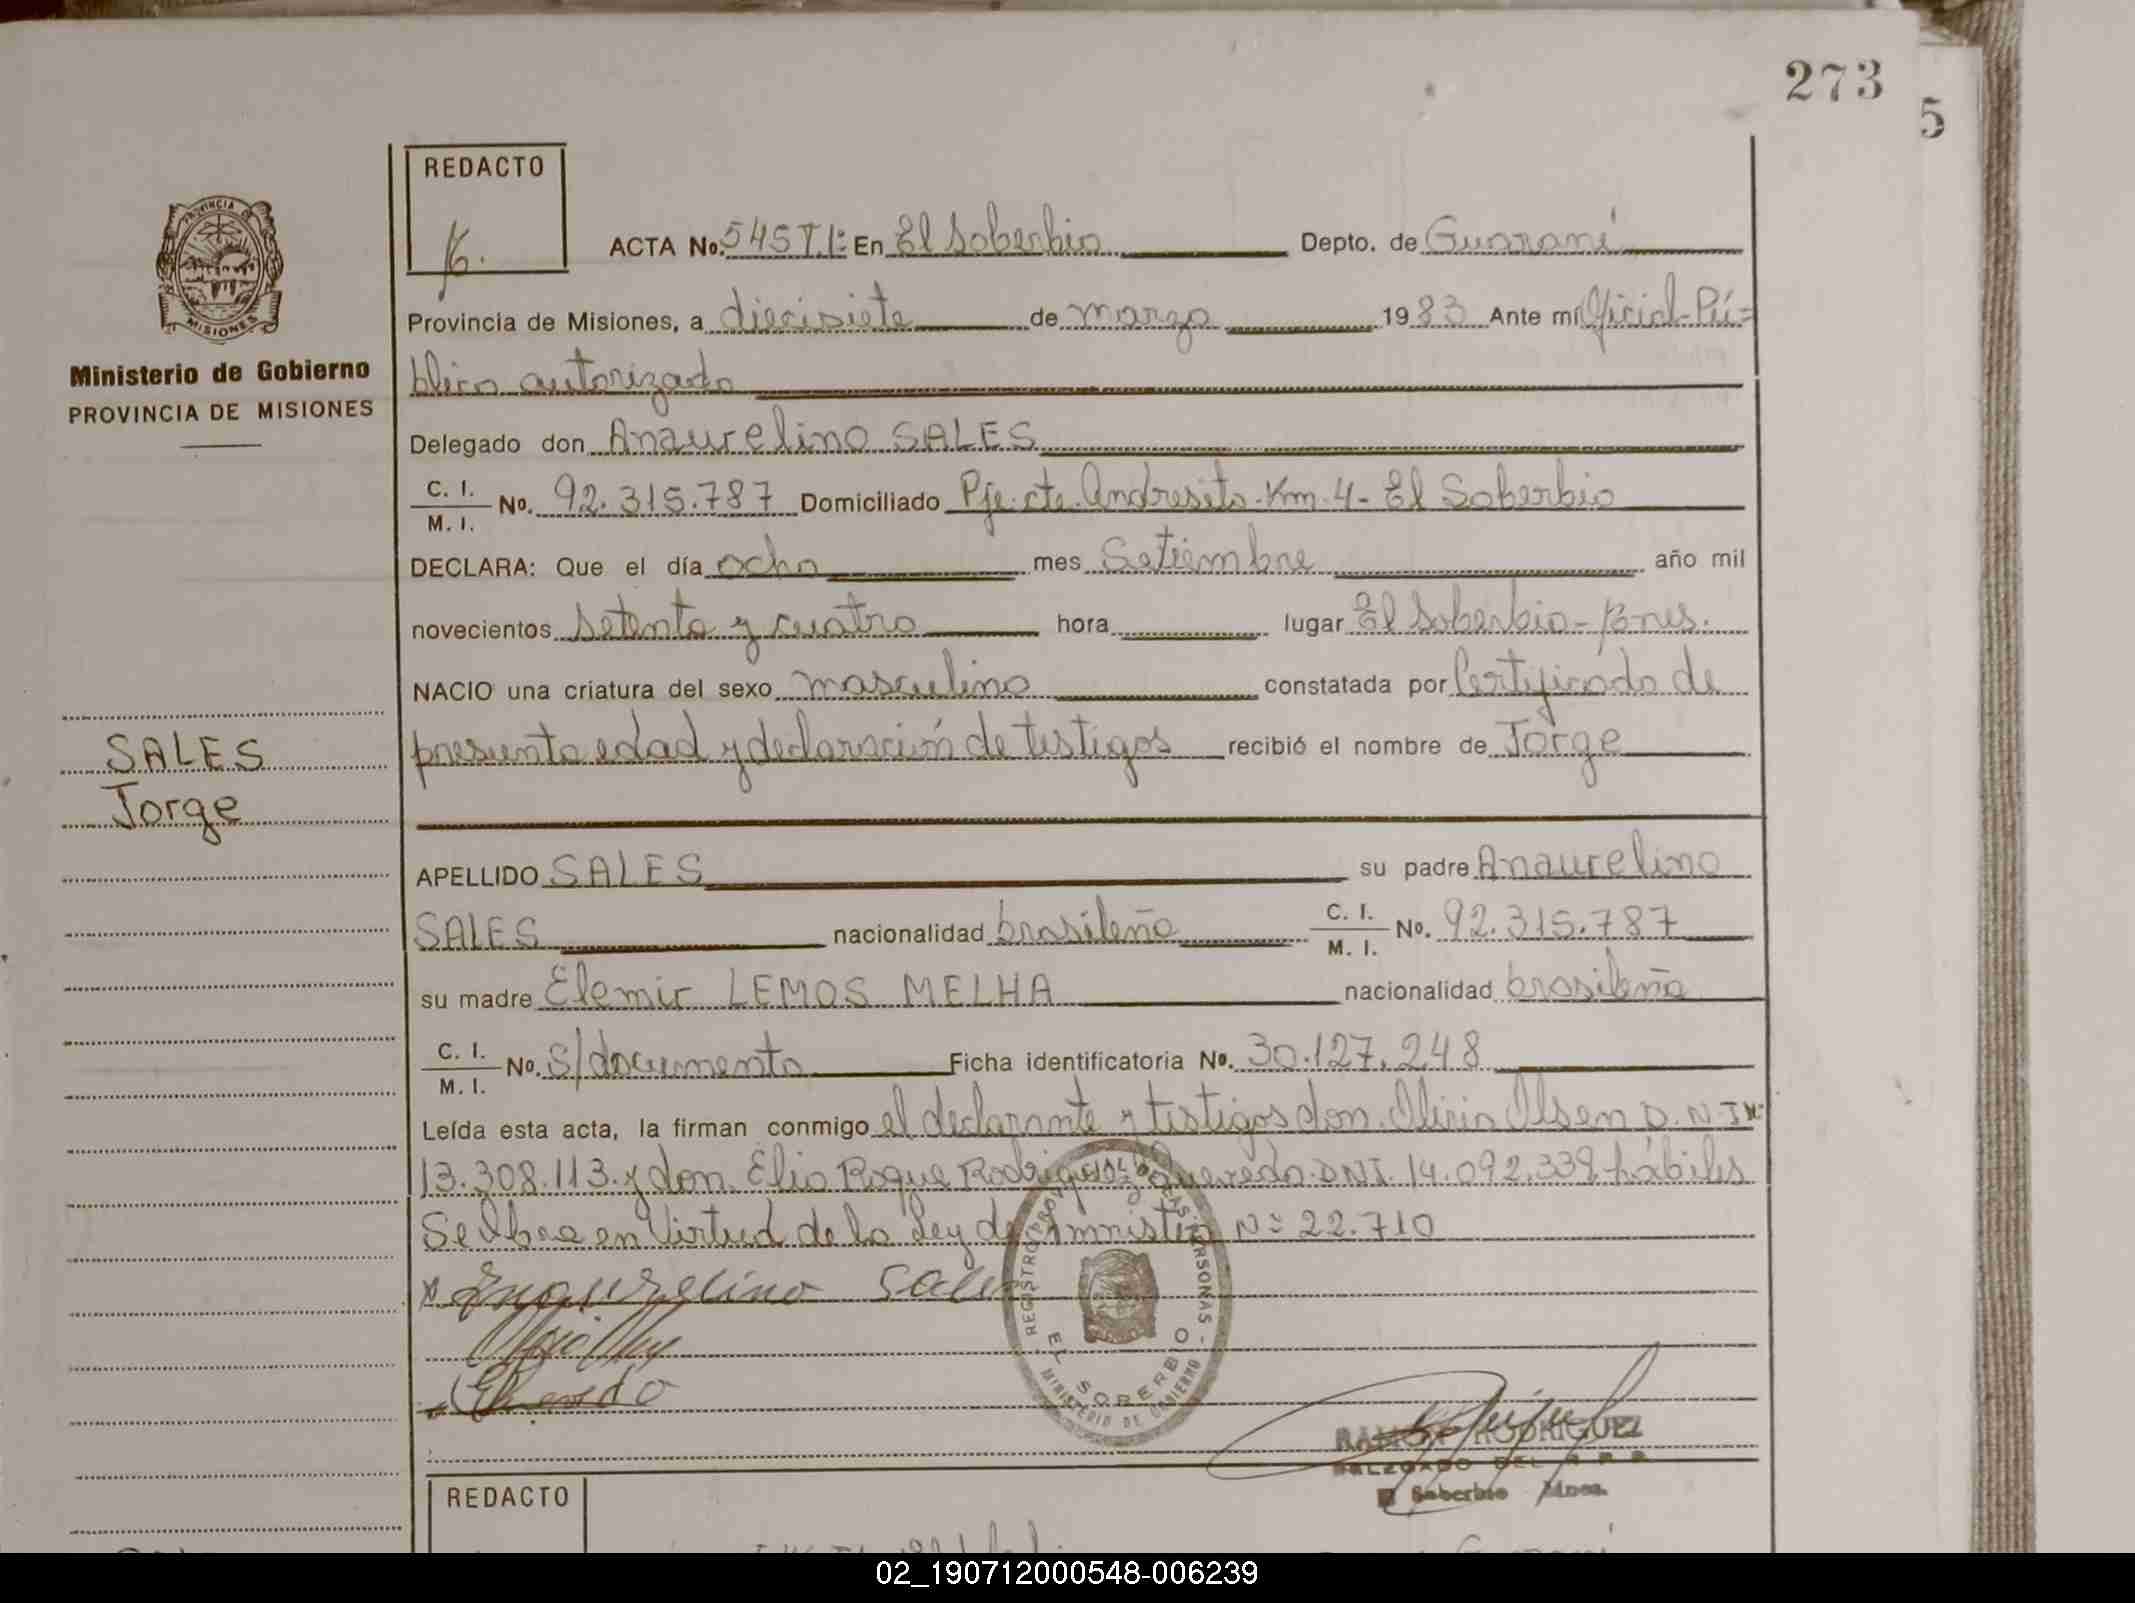 273
5
REDACTO
ACTA No. 545 T.1º En El Soberbio Depto. de Guaraní
Provincia de Misiones, a diecisiete de marzo 1983 Ante mi Oficial Pú=
blico autorizado
Delegado don Anaurelino SALES
C. I.
M. I.
No. 92.315.787 Domiciliado Pje. cte. Andresito. Km. 4- El Soberbio
DECLARA: Que el día ocho mes Setiembre año mil
novecientos setenta y cuatro hora lugar El Soberbio-
NACIO una criatura del sexo masculino constatada por Certificado de
presunta edad y declaración de testigos recibió el nombre de Jorge
APELLIDO SALES su padre Anaurelino
SALES nacionalidad brasileña C. I.
M. I. No. 92.315.787
su madre Elemir LEMOS MELHA nacionalidad brasileña
C. I.
M. I. No. S/documento Ficha identificatoria No. 30.127.248
Leída esta acta, la firman conmigo el declarante y testigos don Olsen D.N.I Nº
13.308.113. y don Elio Roque Rodriguez Quevedo. DNI. 14.092.339 hábiles
Se labra en Virtud de la Ley de Amnistia Nº 22.710
PROVINCIA DE
MISIONES
Ministerio de Gobierno
PROVINCIA DE MISIONES
SALES
Jorge
Sales
REGISTRO PROV. DE LAS PERSONAS -
EL SOBERBIO
MINISTERIO DE GOBIERNO
RAMON RODRIGUEZ
DELEGADO DEL R P P
El Soberbio Mnes.
REDACTO
02_190712000548-006239